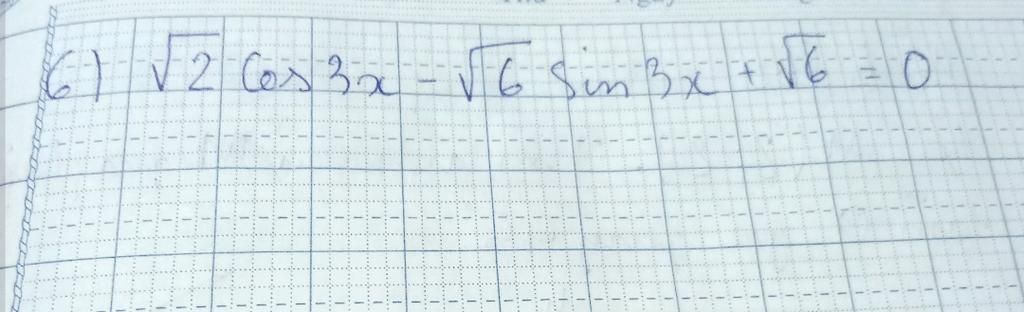 6) √2 cos 3x - √6 sin 3x + √6 = 0